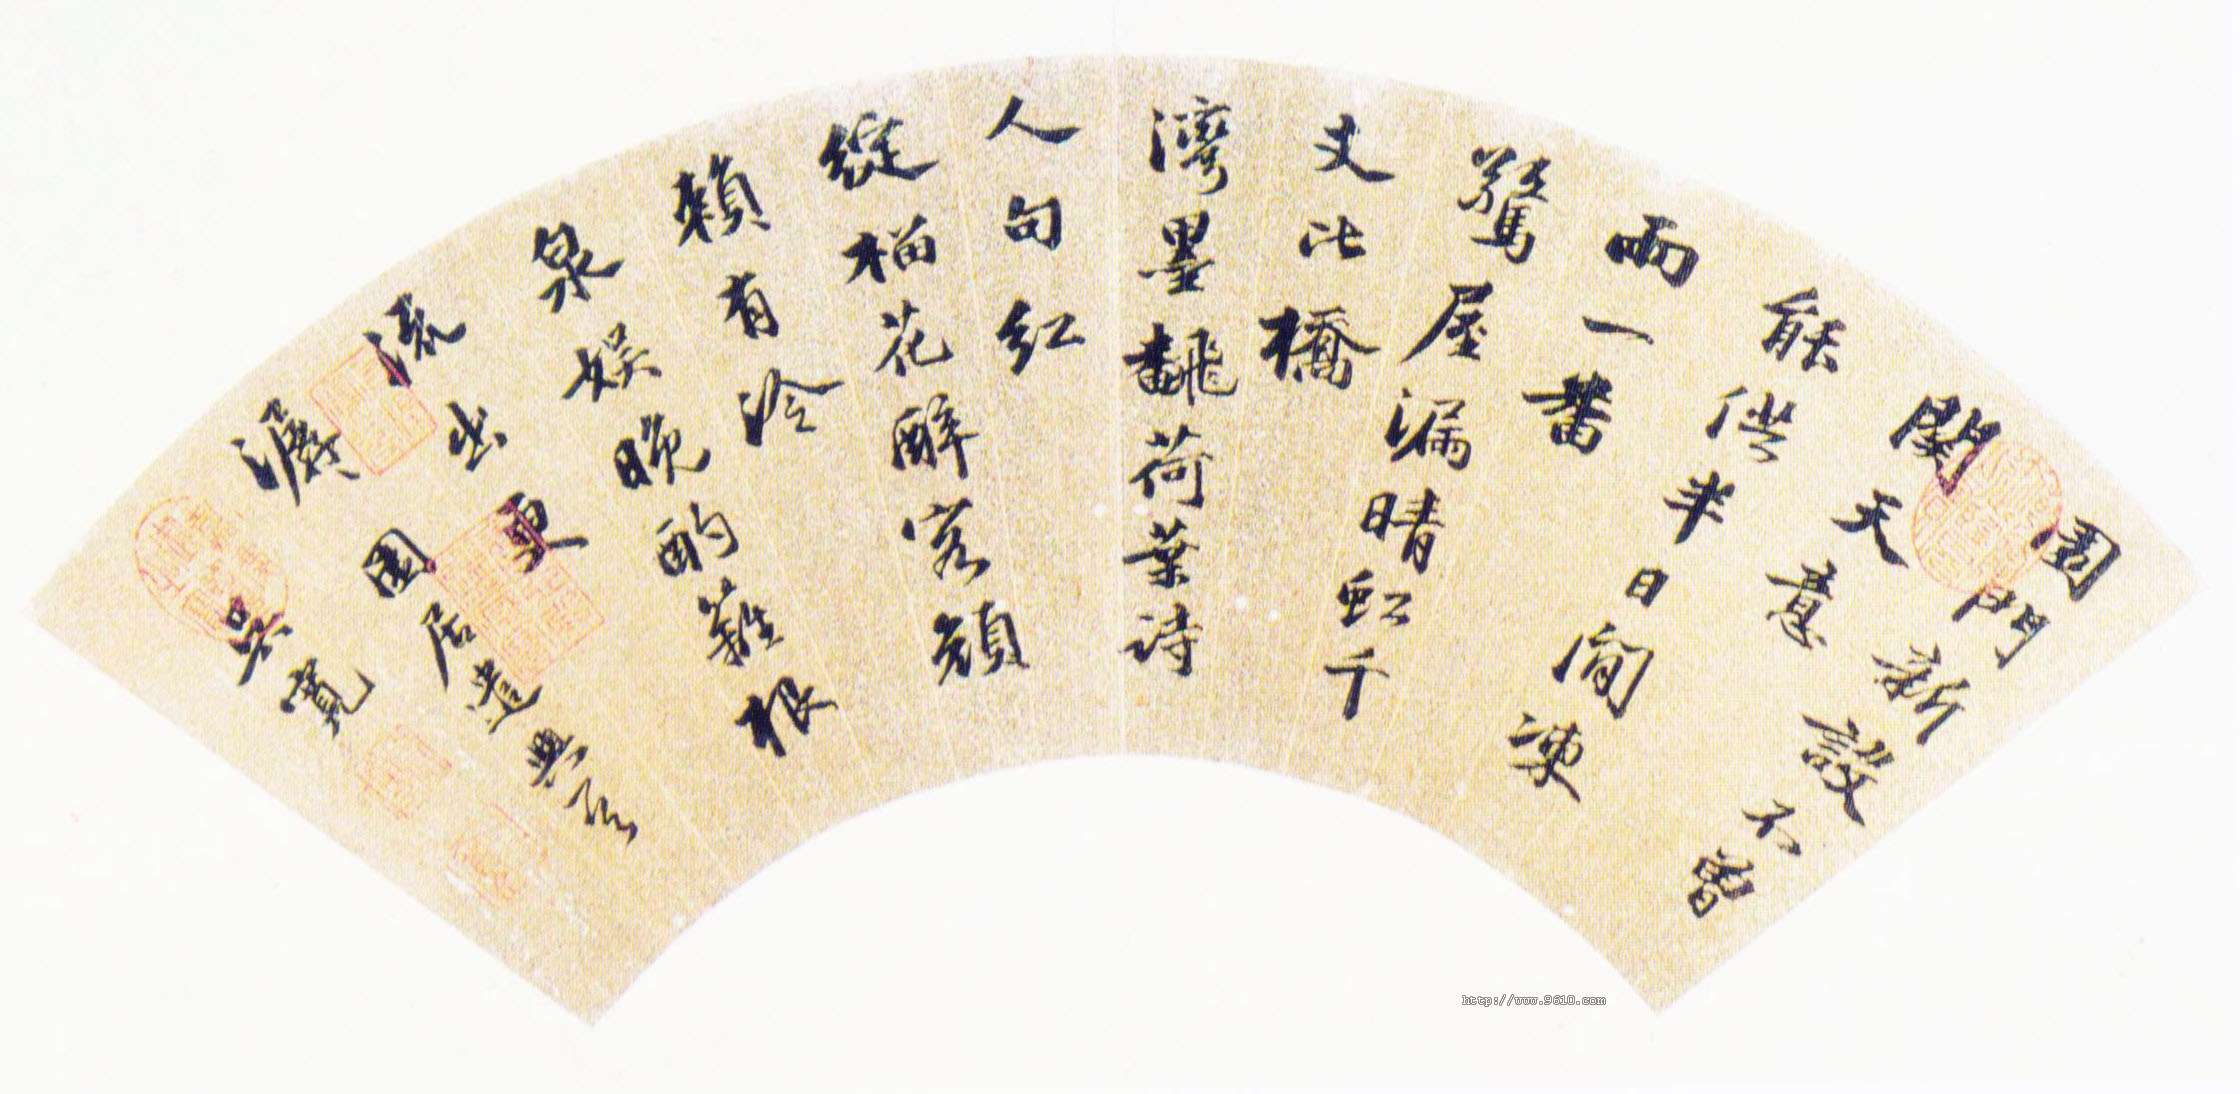 園門新設不曾
關天意
能供半日間凍
雨一番
驚屋漏晴虹千
丈比橋
灣墨飜荷葉詩
人句紅
綻榴花醉客顏
賴有冷
泉娛晚酌蘺根
流出更
潺
園居遣興
吳寬
http://www.9610.com